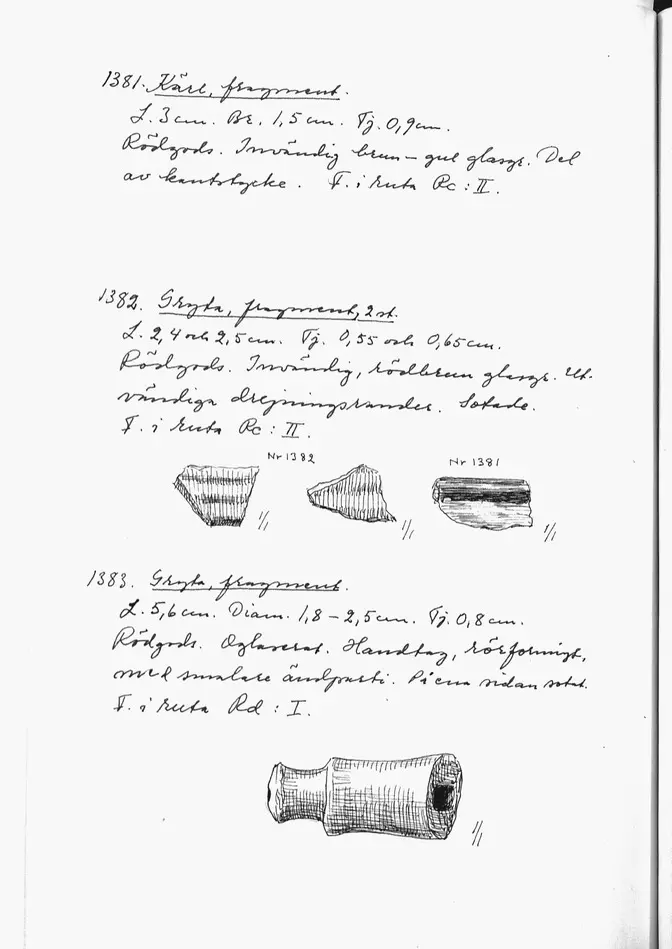 1381. Kärl, fragment.
L. 3 cm. Br. 1,5 cm. Tj. 0,9 cm.
Rödgods. Invändig brun - gul glasyr. Del
av kantstycke. F. i ruta Rc : II.
1382. Gryta, fragment, 2 st.
L. 2,4 och 2,5 cm. Tj. 0,55 och 0,65 cm.
Rödgods. Invändig, rödbrun glasyr. Ut-
vändiga drejningsränder. Sotade.
F. i ruta Rc : II.
Nr 1382
Nr 1381
1/1
1/1
1/1
1383. Gryta, fragment.
L. 5,6 cm. Diam. 1,8 - 2,5 cm. Tj. 0,8 cm.
Rödgods. Oglaserat. Handtag, rörformigt,
med smalare ändparti. På ena sidan sotat.
F. i ruta Rd : I.
1/1